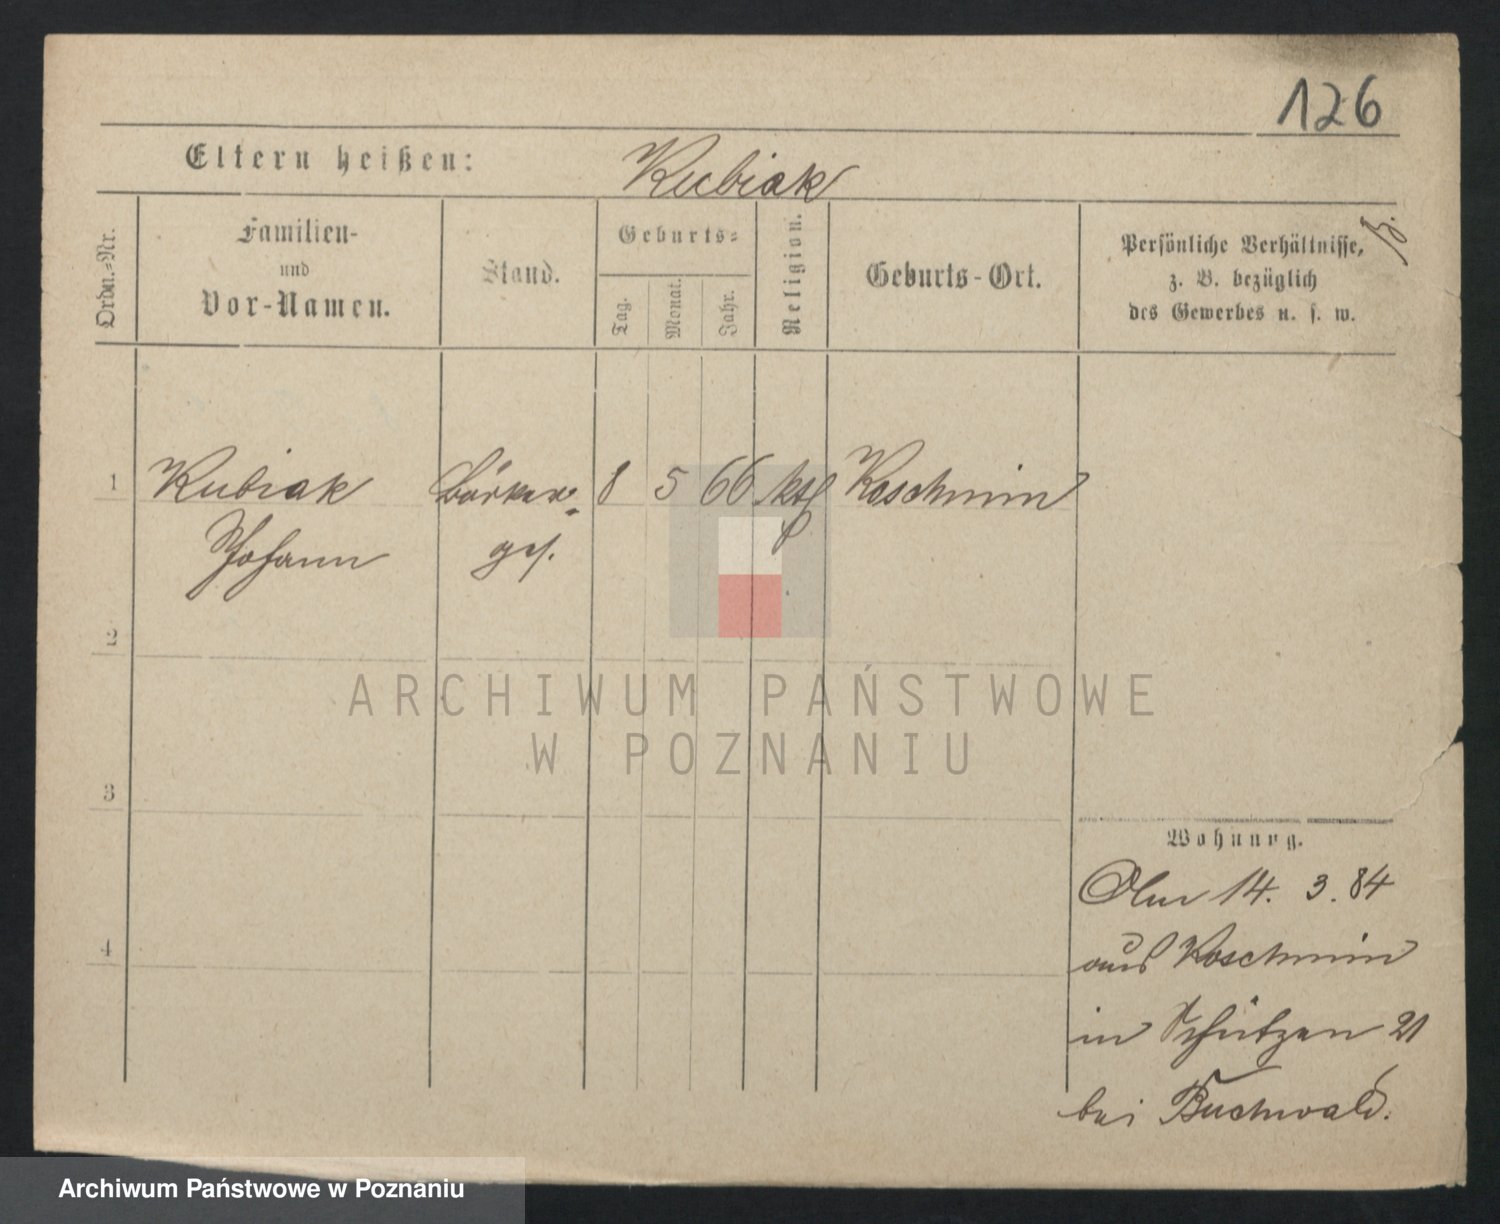 126
Eltern heißen: Kubiak
Ordn.-Nr.
Familien-
und
Vor-Namen.
Stand.
Geburts-
Tag.
Monat.
Jahr.
Religion.
Geburts-Ort.
Persönliche Verhältnisse,
z. B. bezüglich
des Gewerbes u. s. w.
1 Kubiak Bäcker- 8 5 66 kth Koschmin
Johann ges.
2
3
4
Wohnung.
14. 3. 84
aus Koschmin
in Schützen 21
bei Buchwald.
ARCHIWUM PAŃSTWOWE
W POZNANIU
Archiwum Państwowe w Poznaniu